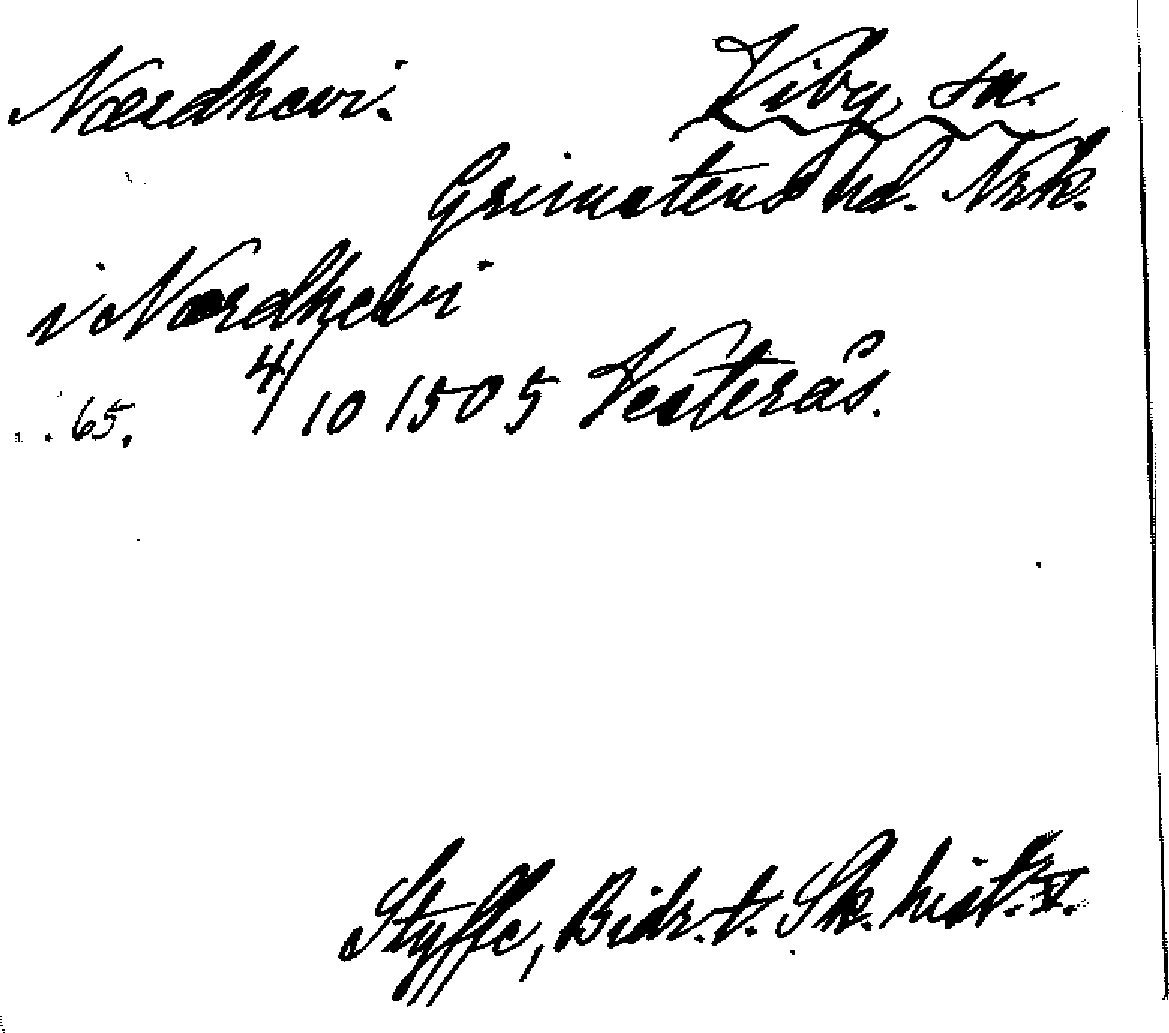 Nærdhævi. Viby sn.
Grimstens hd. Nrk.
i Nærdhævi
s. 65. 4/10 1505 Vesterås.
Styffe, Bidr. t. Sk. hist. V.